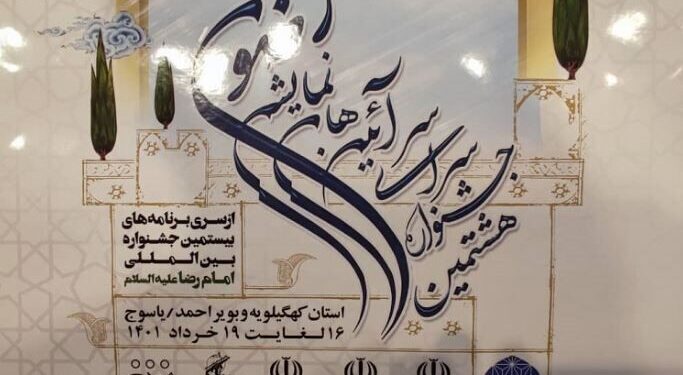 هشتمین جشنواره سراسری آئین های نمایشی رضوی
از سری برنامه های
بیستمین جشنواره
بین المللی
امام رضا علیه السلام
استان کهگیلویه و بویر احمد/یاسوج
۱۶ لغایت ۱۹ خرداد ۱۴۰۱